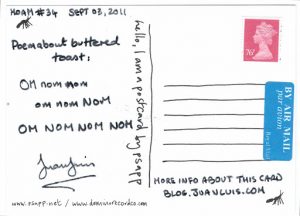 HOAM #34 SEPT 03, 2011
Poem about buttered
toast:
OM nom nom
om nom NOM
OM NOM NOM NOM
JuanLuis
www.psapp.net / www.downwrecordco.com
hello, I am a postcard by psapp
76
BY AIR MAIL
par avion
Royal Mail
MORE INFO ABOUT THIS CARD
BLOG.JUANLUIS.COM